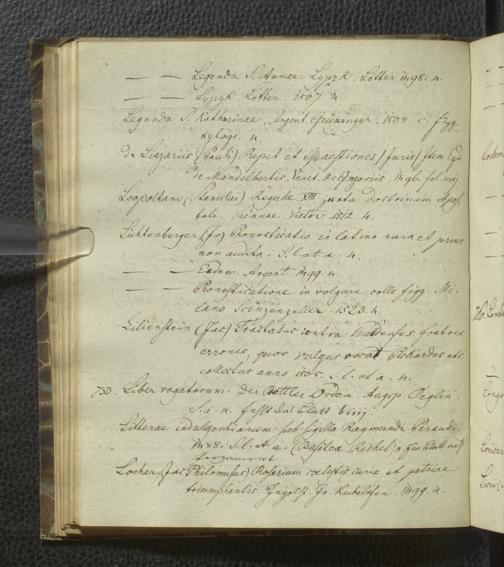 — — Legenda S. Annae. Lypzk. Lotter 1498. 4.
— — Lypzk Lotter 1507 4.
Legenda S. Katharinae. Argent Grüninger. 1508. c. figg.
xylogr. 4.
de Liazariis (Paul) Repet et Quaestiones Juris) Item Egid
de Mandelbertis. Venet. de Gregoriis. fol. maj
Leopoltani (Stanislai) Regulae XIII juxta doctrinam
Viennae. Victor. 1512 4.
Lichtenberger (Jo) Pronosticatio in latino rara et prius
non audita. S. l. et a. 4.
— — Eadem. Argent 1499. 4.
— — Pronosticatione in volgare colle figg. Mi-
lano Scinzenzeler. 1523. 4.
Lilienstein (Jac) Tractatus contra Waldenses fratres
erroneos, quos vulgus vocat Pickardos etc
collectus anno 1505. S. l. et a. 4.
730. Liber vagatorum. der Bettler Orden. Augsp. Öglin.
S. a. 4. fehlt das Blatt
Litterae indulgentiarum sub sigillo Raymundi Peraudi
1488. S. l. et a. (Basileae Richel) 2. Ein Blatt auf
Pergament
Locher, (Jac Philomusi) Rosarium coelestis curiae et patriae
triumphantis. Ingolst. Jo. Kachelofen. 1499. 4.